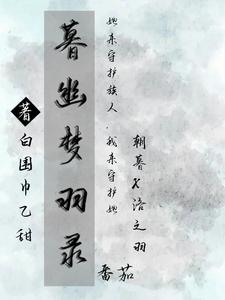 她来守护族人,我来守护她
朝暮X洛之羽
暮幽梦羽录
著
白围巾乙甜
番茄